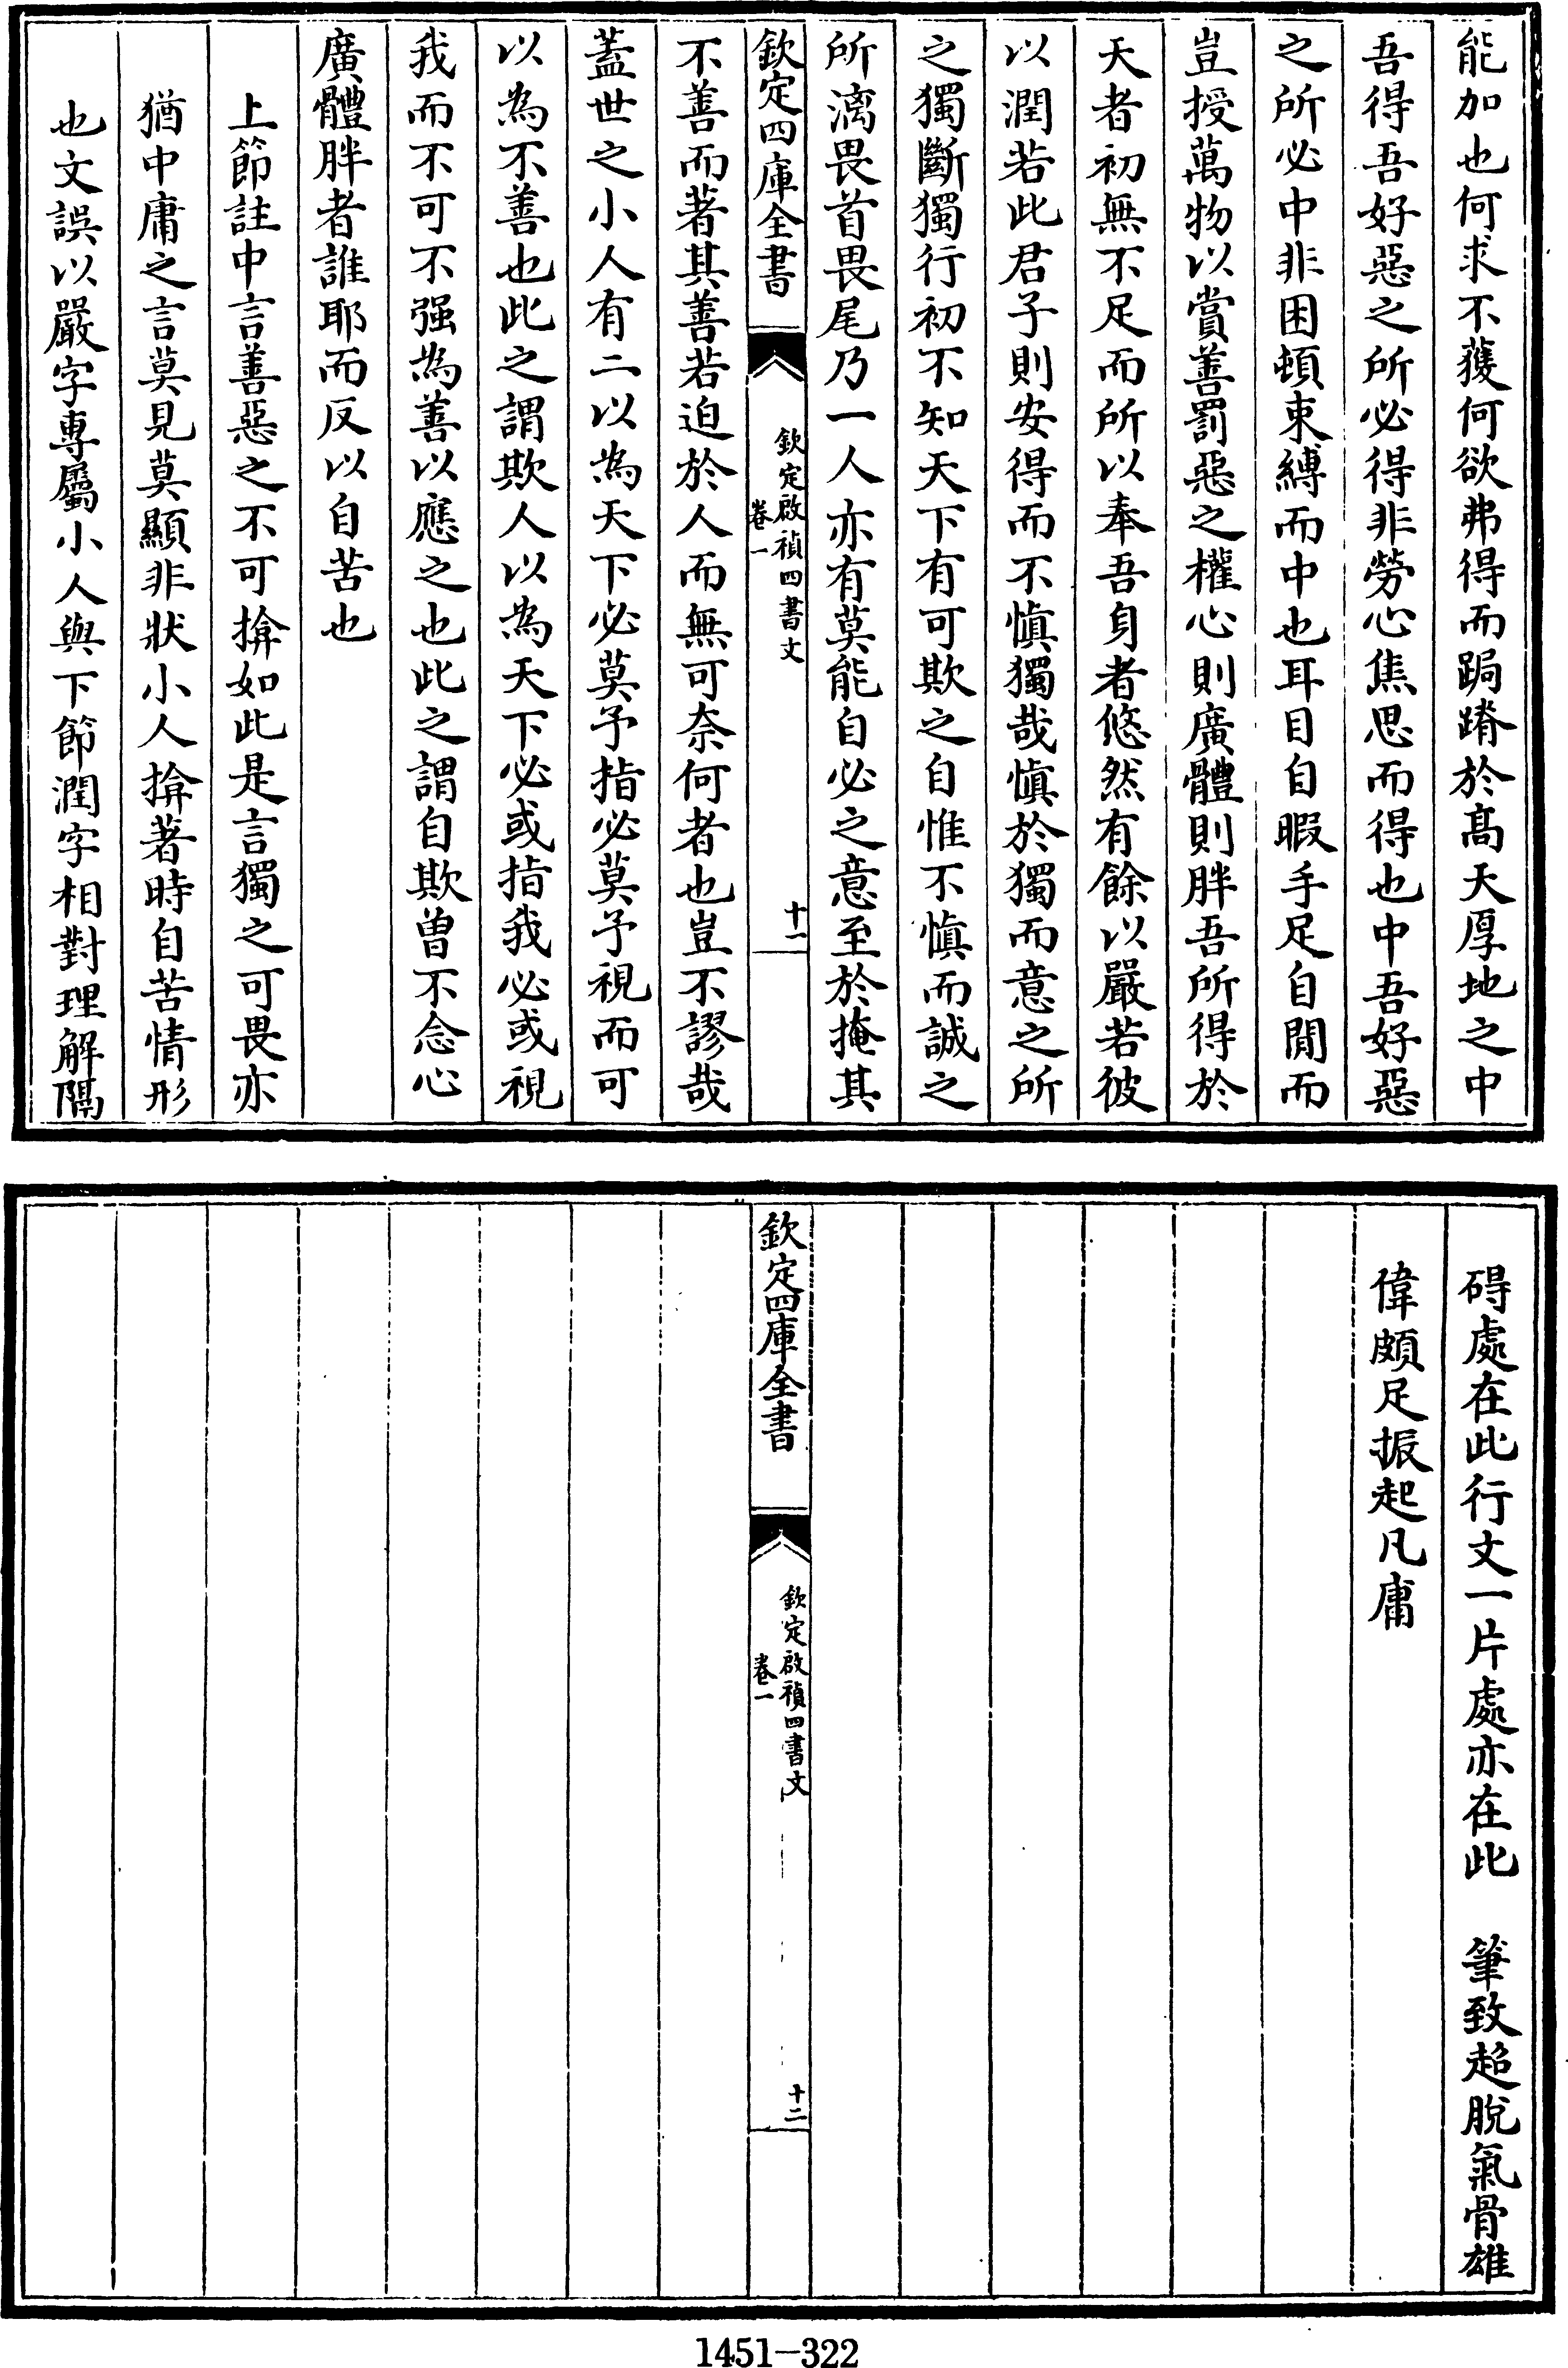 能加也何求不獲何欲弗得而跼蹐於髙天厚地之中
吾得吾好惡之所必得非勞心焦思而得也中吾好惡
之所必中非困頓束縛而中也耳目自暇手足自閒而
豈授萬物以賞善罰惡之權心則廣體則胖吾所得於
天者初無不足而所以奉吾身者悠然有餘以嚴若彼
以潤若此君子則安得而不慎獨哉慎於獨而意之所
之獨斷獨行初不知天下有可欺之自惟不慎而誠之
所漓畏首畏尾乃一人亦有莫能自必之意至於掩其
欽定四庫全書
欽定啟禎四書文
卷一
十一
不善而著其善若迫於人而無可奈何者也豈不謬哉
蓋世之小人有二以為天下必莫予指必莫予視而可
以為不善也此之謂欺人以為天下必或指我必或視
我而不可不强為善以應之也此之謂自欺曾不念心
廣體胖者誰耶而反以自苦也
上節註中言善惡之不可揜如此是言獨之可畏亦
猶中庸之言莫見莫顯非狀小人揜著時自苦情形
也文誤以嚴字專屬小人與下節潤字相對理解隔
碍處在此行文一片處亦在此　筆致超脫氣骨雄
偉頗足振起凡庸
欽定四庫全書
欽定啟禎四書文
卷一
十二
1451-322